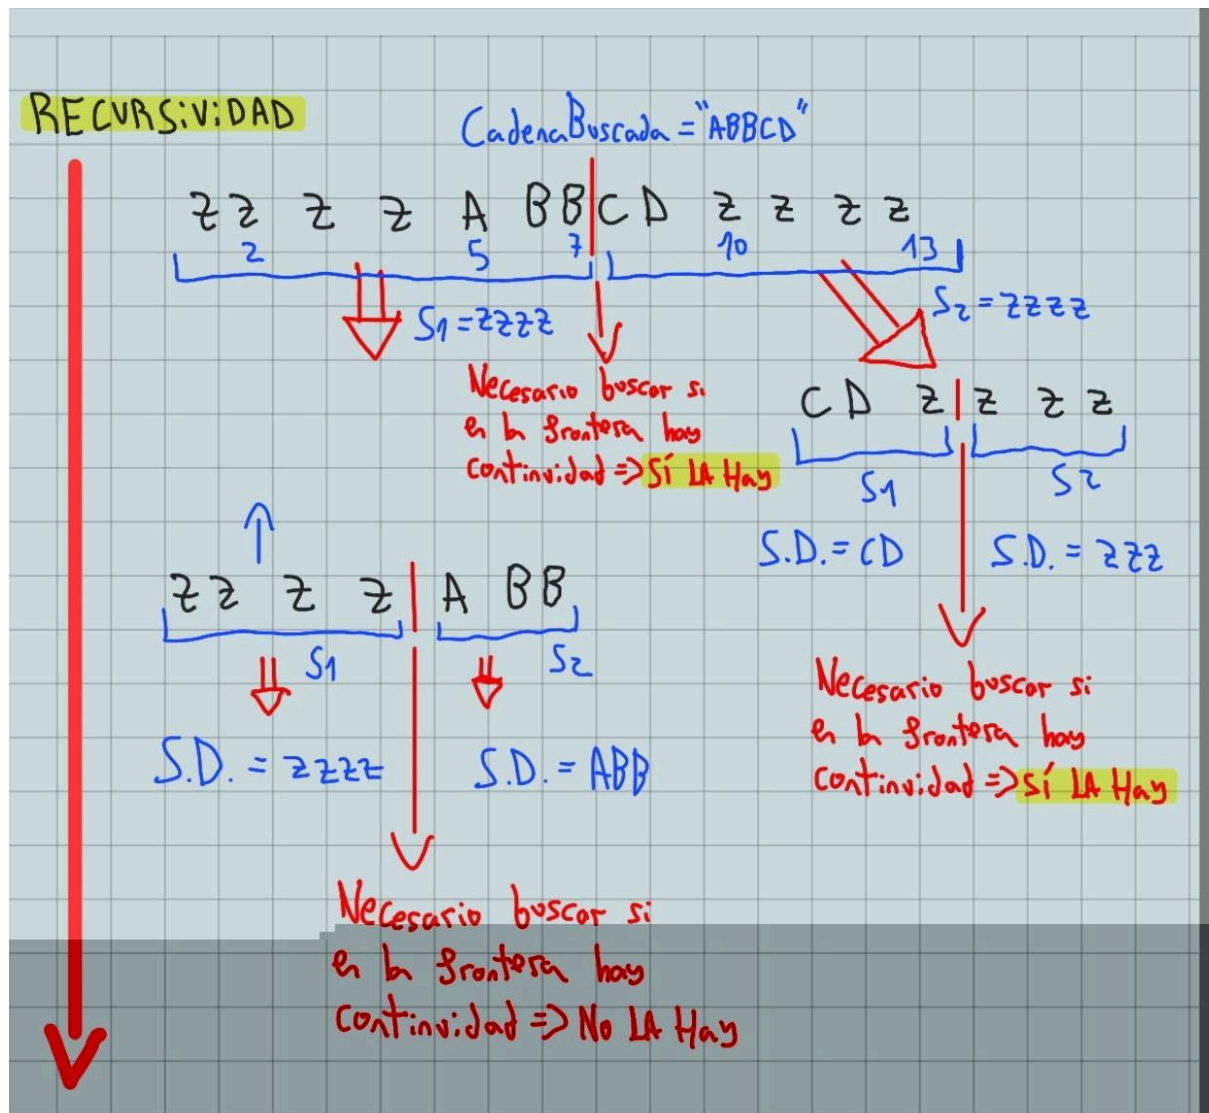 RECURSiViDAD
CadenaBuscada = "ABBCD"
z z z z A B B | C D z z z z
2 5 7 10 13
S1 = zzzz
S2 = zzzz
Necesario buscar si
en la frontera hay
continuidad => SÍ LA Hay
C D z | z z z
S1 S2
S.D. = CD S.D. = zzz
Necesario buscar si
en la frontera hay
continuidad => SÍ LA Hay
z z z z | A B B
S1 S2
S.D. = zzzz S.D. = ABB
Necesario buscar si
en la frontera hay
continuidad => No LA Hay